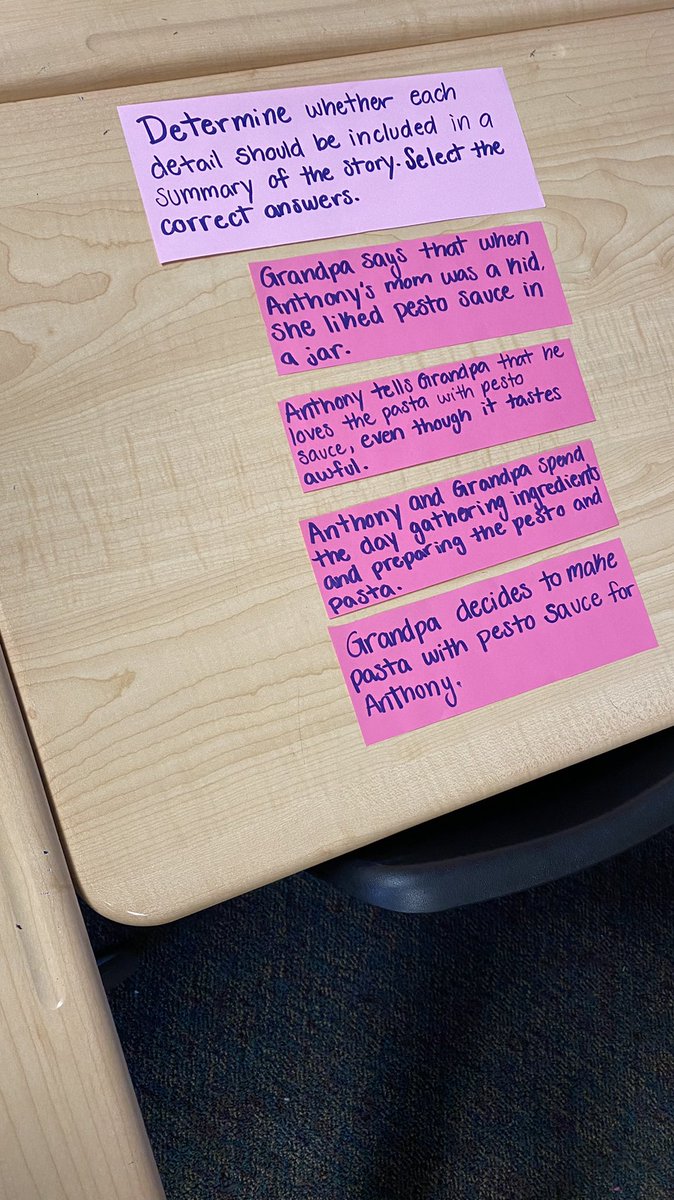 Determine whether each
detail should be included in a
summary of the story. Select the
correct answers.
Grandpa says that when
Anthony's mom was a kid,
she liked pesto sauce in
a jar.
Anthony tells Grandpa that he
loves the pasta with pesto
sauce, even though it tastes
awful.
Anthony and Grandpa spend
the day gathering ingredients
and preparing the pesto and
pasta.
Grandpa decides to make
pasta with pesto sauce for
Anthony.